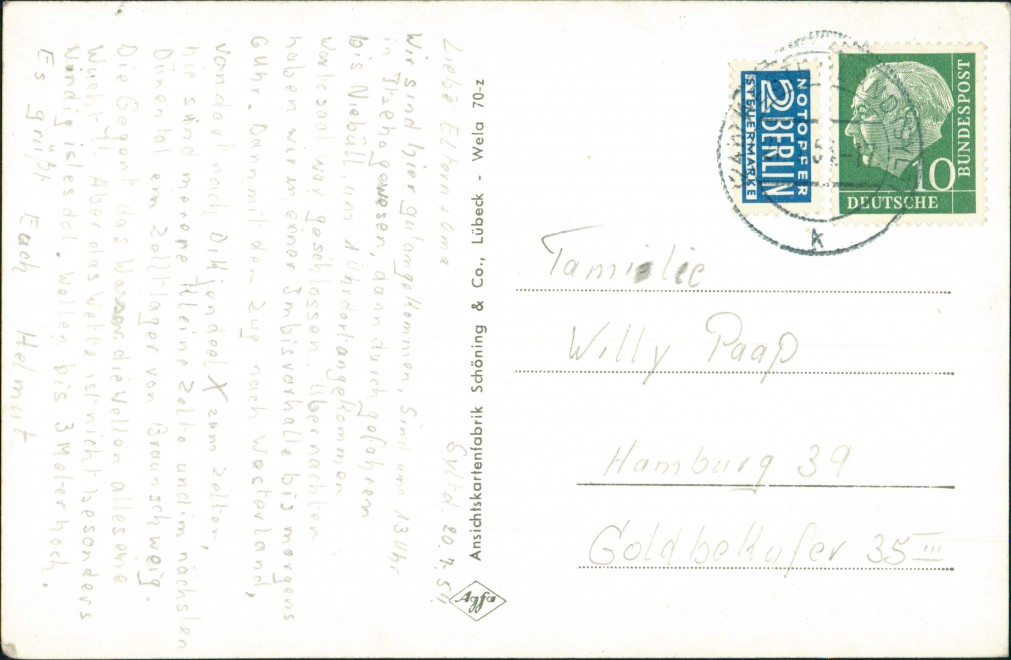 Sylt d. 20.7.54
Liebe Eltern u Oma
Wir sind hier gut angekommen, Sind um 13 Uhr
in Itzehoe gewesen, dann durch gefahren
bis Niebüll um 1 Uhr dort angekommen
Wartesaal war geschlossen. Übernachten
haben wir in einer Imbisvorhalle bis morgens
6 Uhr. Dann mit dem Zug nach Westerland,
von dor nach Dikjendeel X zum zelten,
hie sind merere kleine Zelte und im nächsten
Dünental ein Zelltlager von Braunschweig.
Die Gegent das Wasser die Wellen alles eine
Wucht. Aber das Wetter ist nicht besonders
Windig ist es doch. Wellen bis 3 Meter hoch.
Es grüßt Euch Helmut
Ansichtskartenfabrik Schöning & Co., Lübeck - Wela 70-z
Agfa
NOTOPFER
2 BERLIN
STEUERMARKE
DEUTSCHE
BUNDESPOST
10
k
Familie
Willy Paap
Hamburg 39
Goldbekufer 35 III